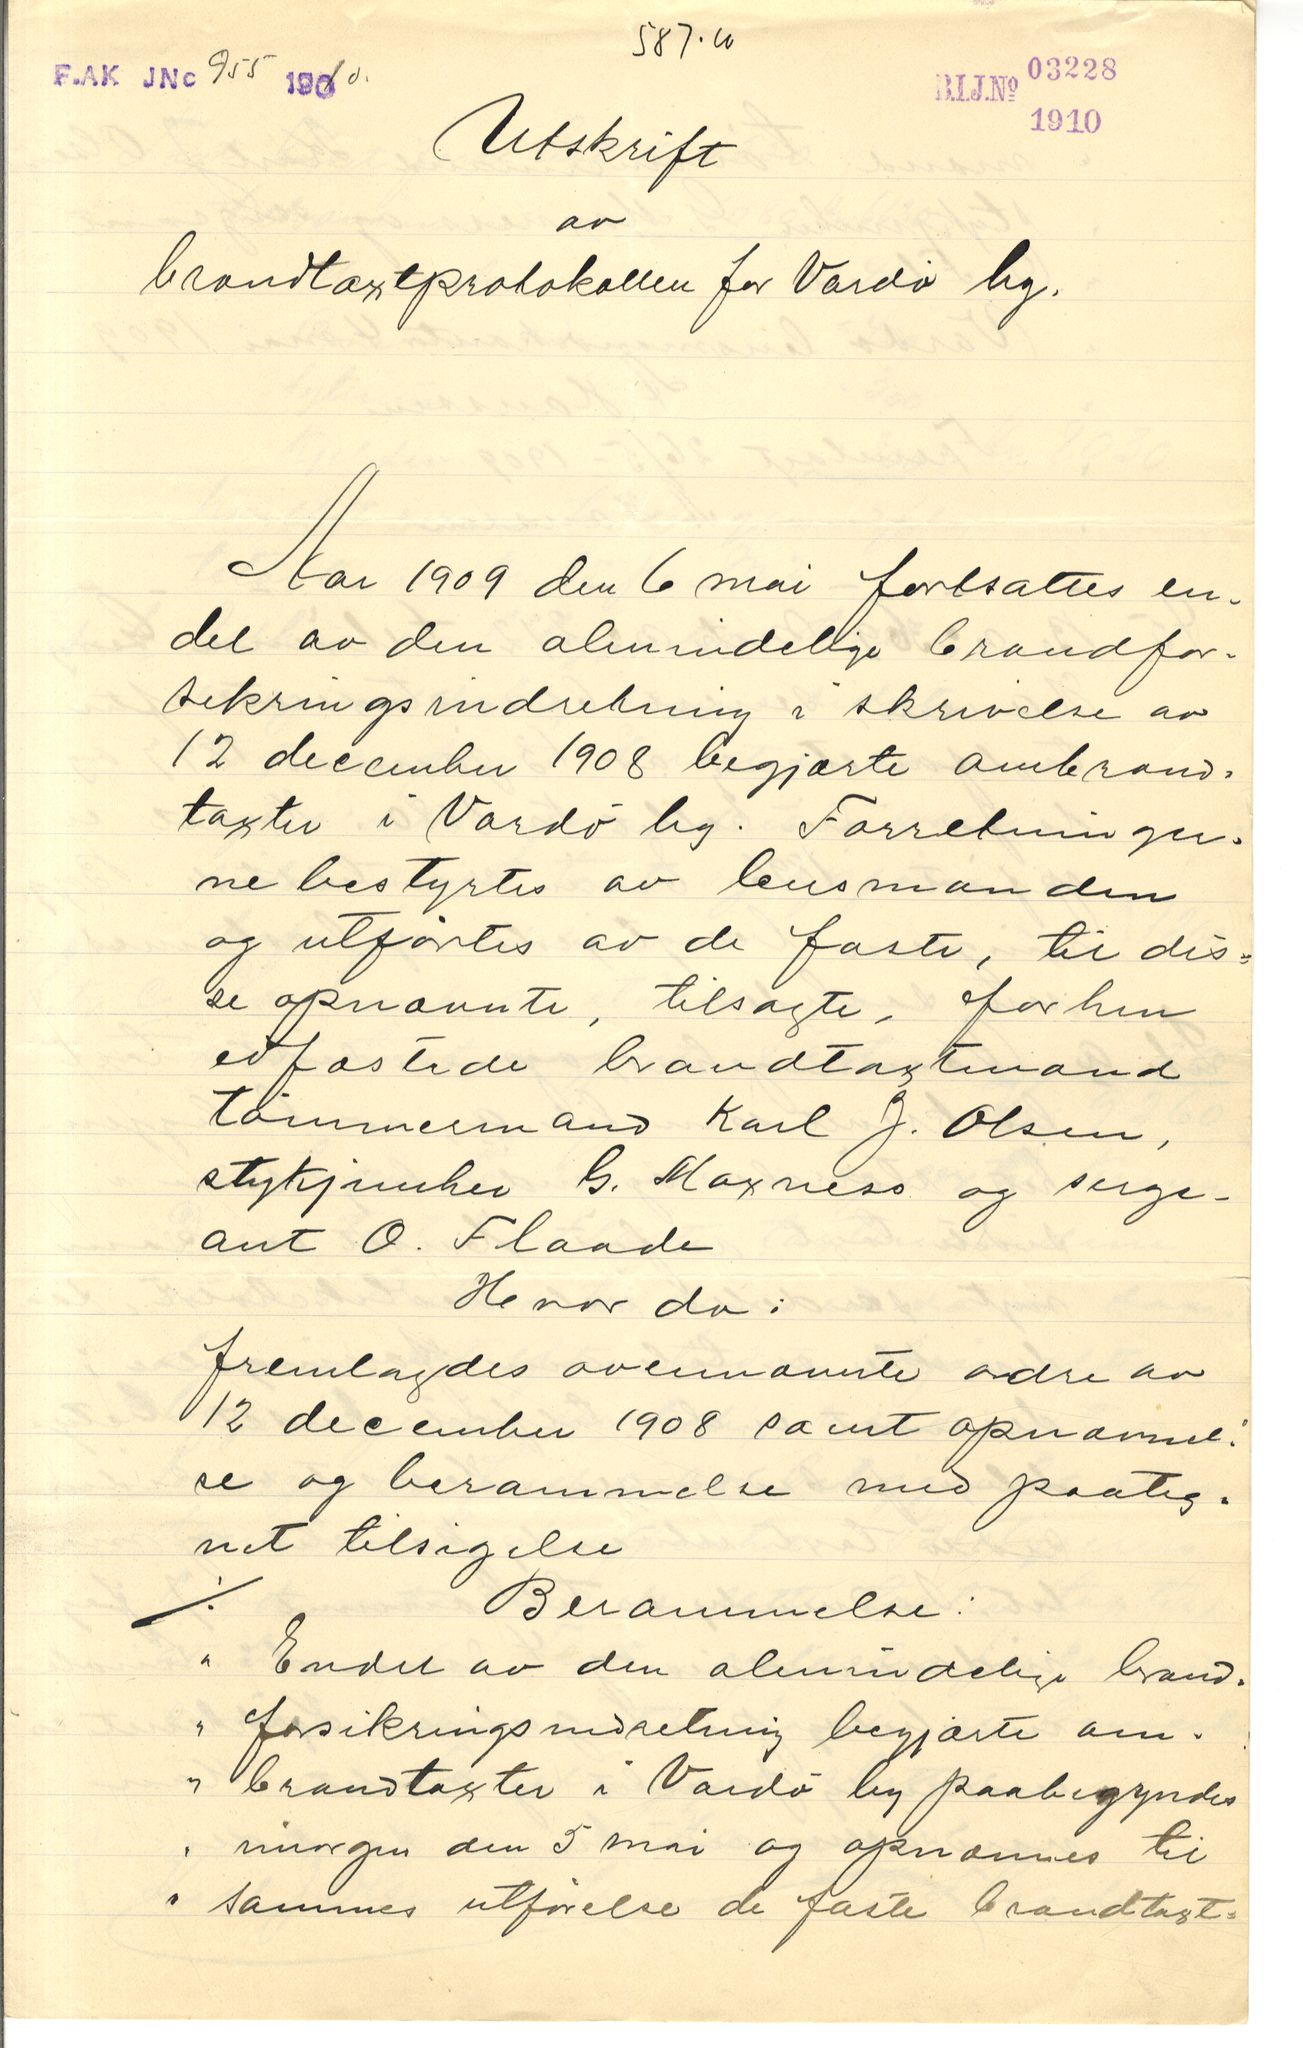 587.10
F.AK JNo 955 1910.
B.I.J.No 03228
1910
Utskrift
av
brandtaxtprotokollen for Vardö by.
Aar 1909 den 6 mai fortsattes en-
del av den almindelige brandfor-
sikringsindretning i skrivelse av
12 december 1908 begjærte ombrand-
taxter i Vardö by. Forretninger-
ne bestyrtes av lensmanden
og utförtes av de faste, til dis-
se opnævnte, tilsagte, forhen
edfæstede brandtaxtmænd
tömmermand Karl J. Olsen,
stykjunker G. Maxness og serge-
ant O. Flaade
Hvor da:
fremlagdes ovennævnte ordre av
12 december 1908 samt opnævnel-
se og berammelse med paateg-
net tilsigelse
./. Berammelse:
" Endel av den almindelige brand-
" forsikringsindretning begjærte om-
" brandtaxter i Vardö by paabegyndes
" imorgen den 5 mai og opnævnes til
" sammes utförelse de faste brandtaxt-